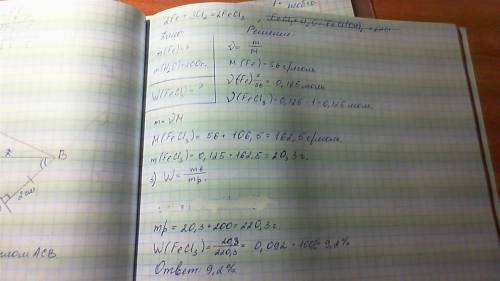 2Fe + 3Cl₂ = 2FeCl₃
Дано:
Решение:
m(H₂O)=200г.
W(FeCl₃)=?
ν = m/M
M(Fe)=56 г/моль
= 0,125 моль
ν(FeCl₃)=0,125 · 1=0,125 моль.
m=νM
M(FeCl₃)= 56 + 106,5 = 162,5 г/моль.
m(FeCl₃)= 0,125 · 162,5 = 20,3 г.
3) W= mв/mр.
mр = 20,3 + 200 = 220,3 г
W(FeCl₃)= 20,3/220,3 = 0,092 · 100% 9,2%
Ответ: 9,2%
B
2см
ACB